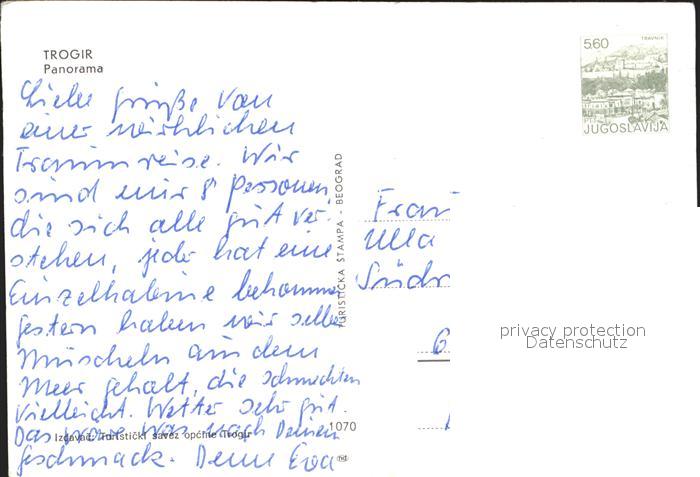 TROGIR
Panorama
5,60
TRAVNIK
PTT
JUGOSLAVIJA
Liebe Grüße von
einer wirklichen
Traumreise. Wir
sind nur 8 Personen,
die sich alle gut ver-
stehen, jeder hat eine
Einzelkabine bekommen
gestern haben wir selber
Muscheln aus dem
Meer geholt, die schmeckten
vielleicht. Wetter sehr gut.
Das wäre was nach Deinem
Geschmack. Deine Eva
Izdavač: Turistički savez općine Trogir
1070
TURISTIČKA ŠTAMPA - BEOGRAD
Frau
Ulla
Südr
6
privacy protection
Datenschutz